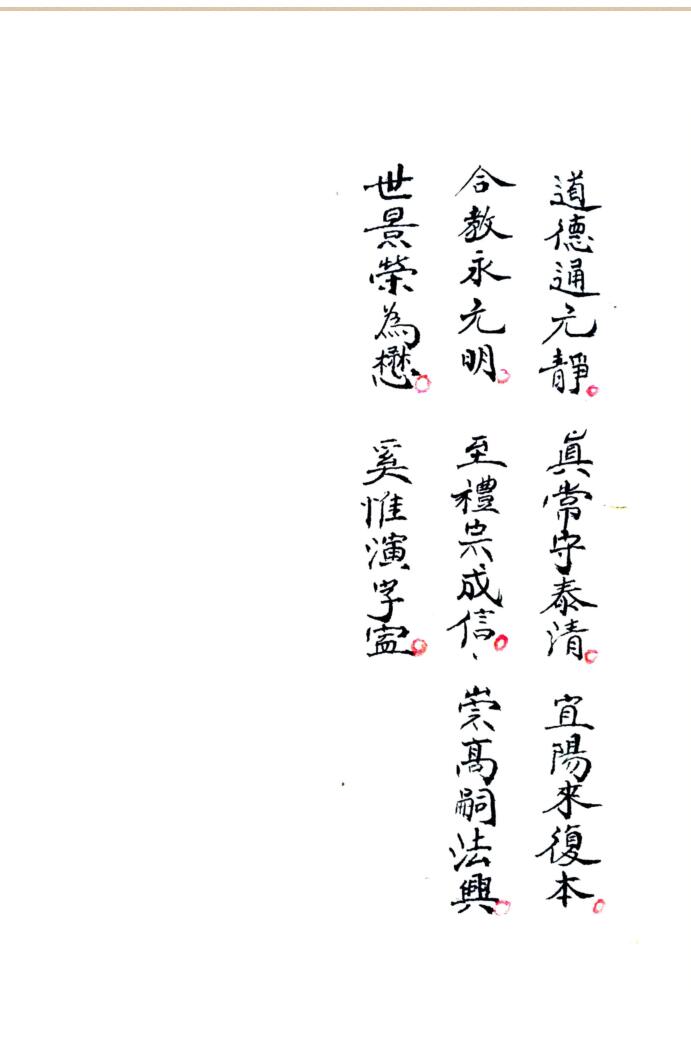 道德通元靜。眞常守泰清。宜陽來復本。
合教永元明。至禮宗成信。崇高嗣法興。
世景榮為懋。奚惟演字寍。